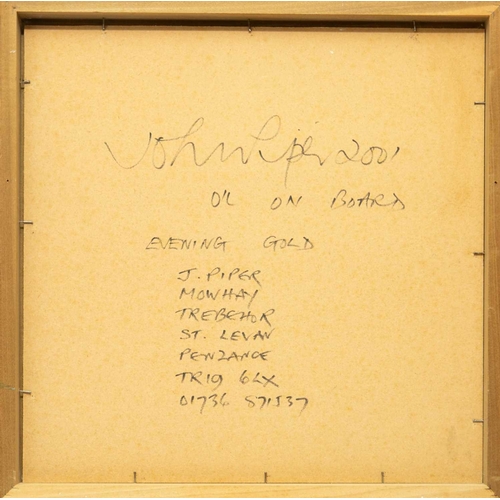 John Piper 2001
OIL ON BOARD
EVENING GOLD
J. PIPER
MOWHAY
TREBEHOR
ST. LEVAN
PENZANCE
TR19 6LX
01736 871537